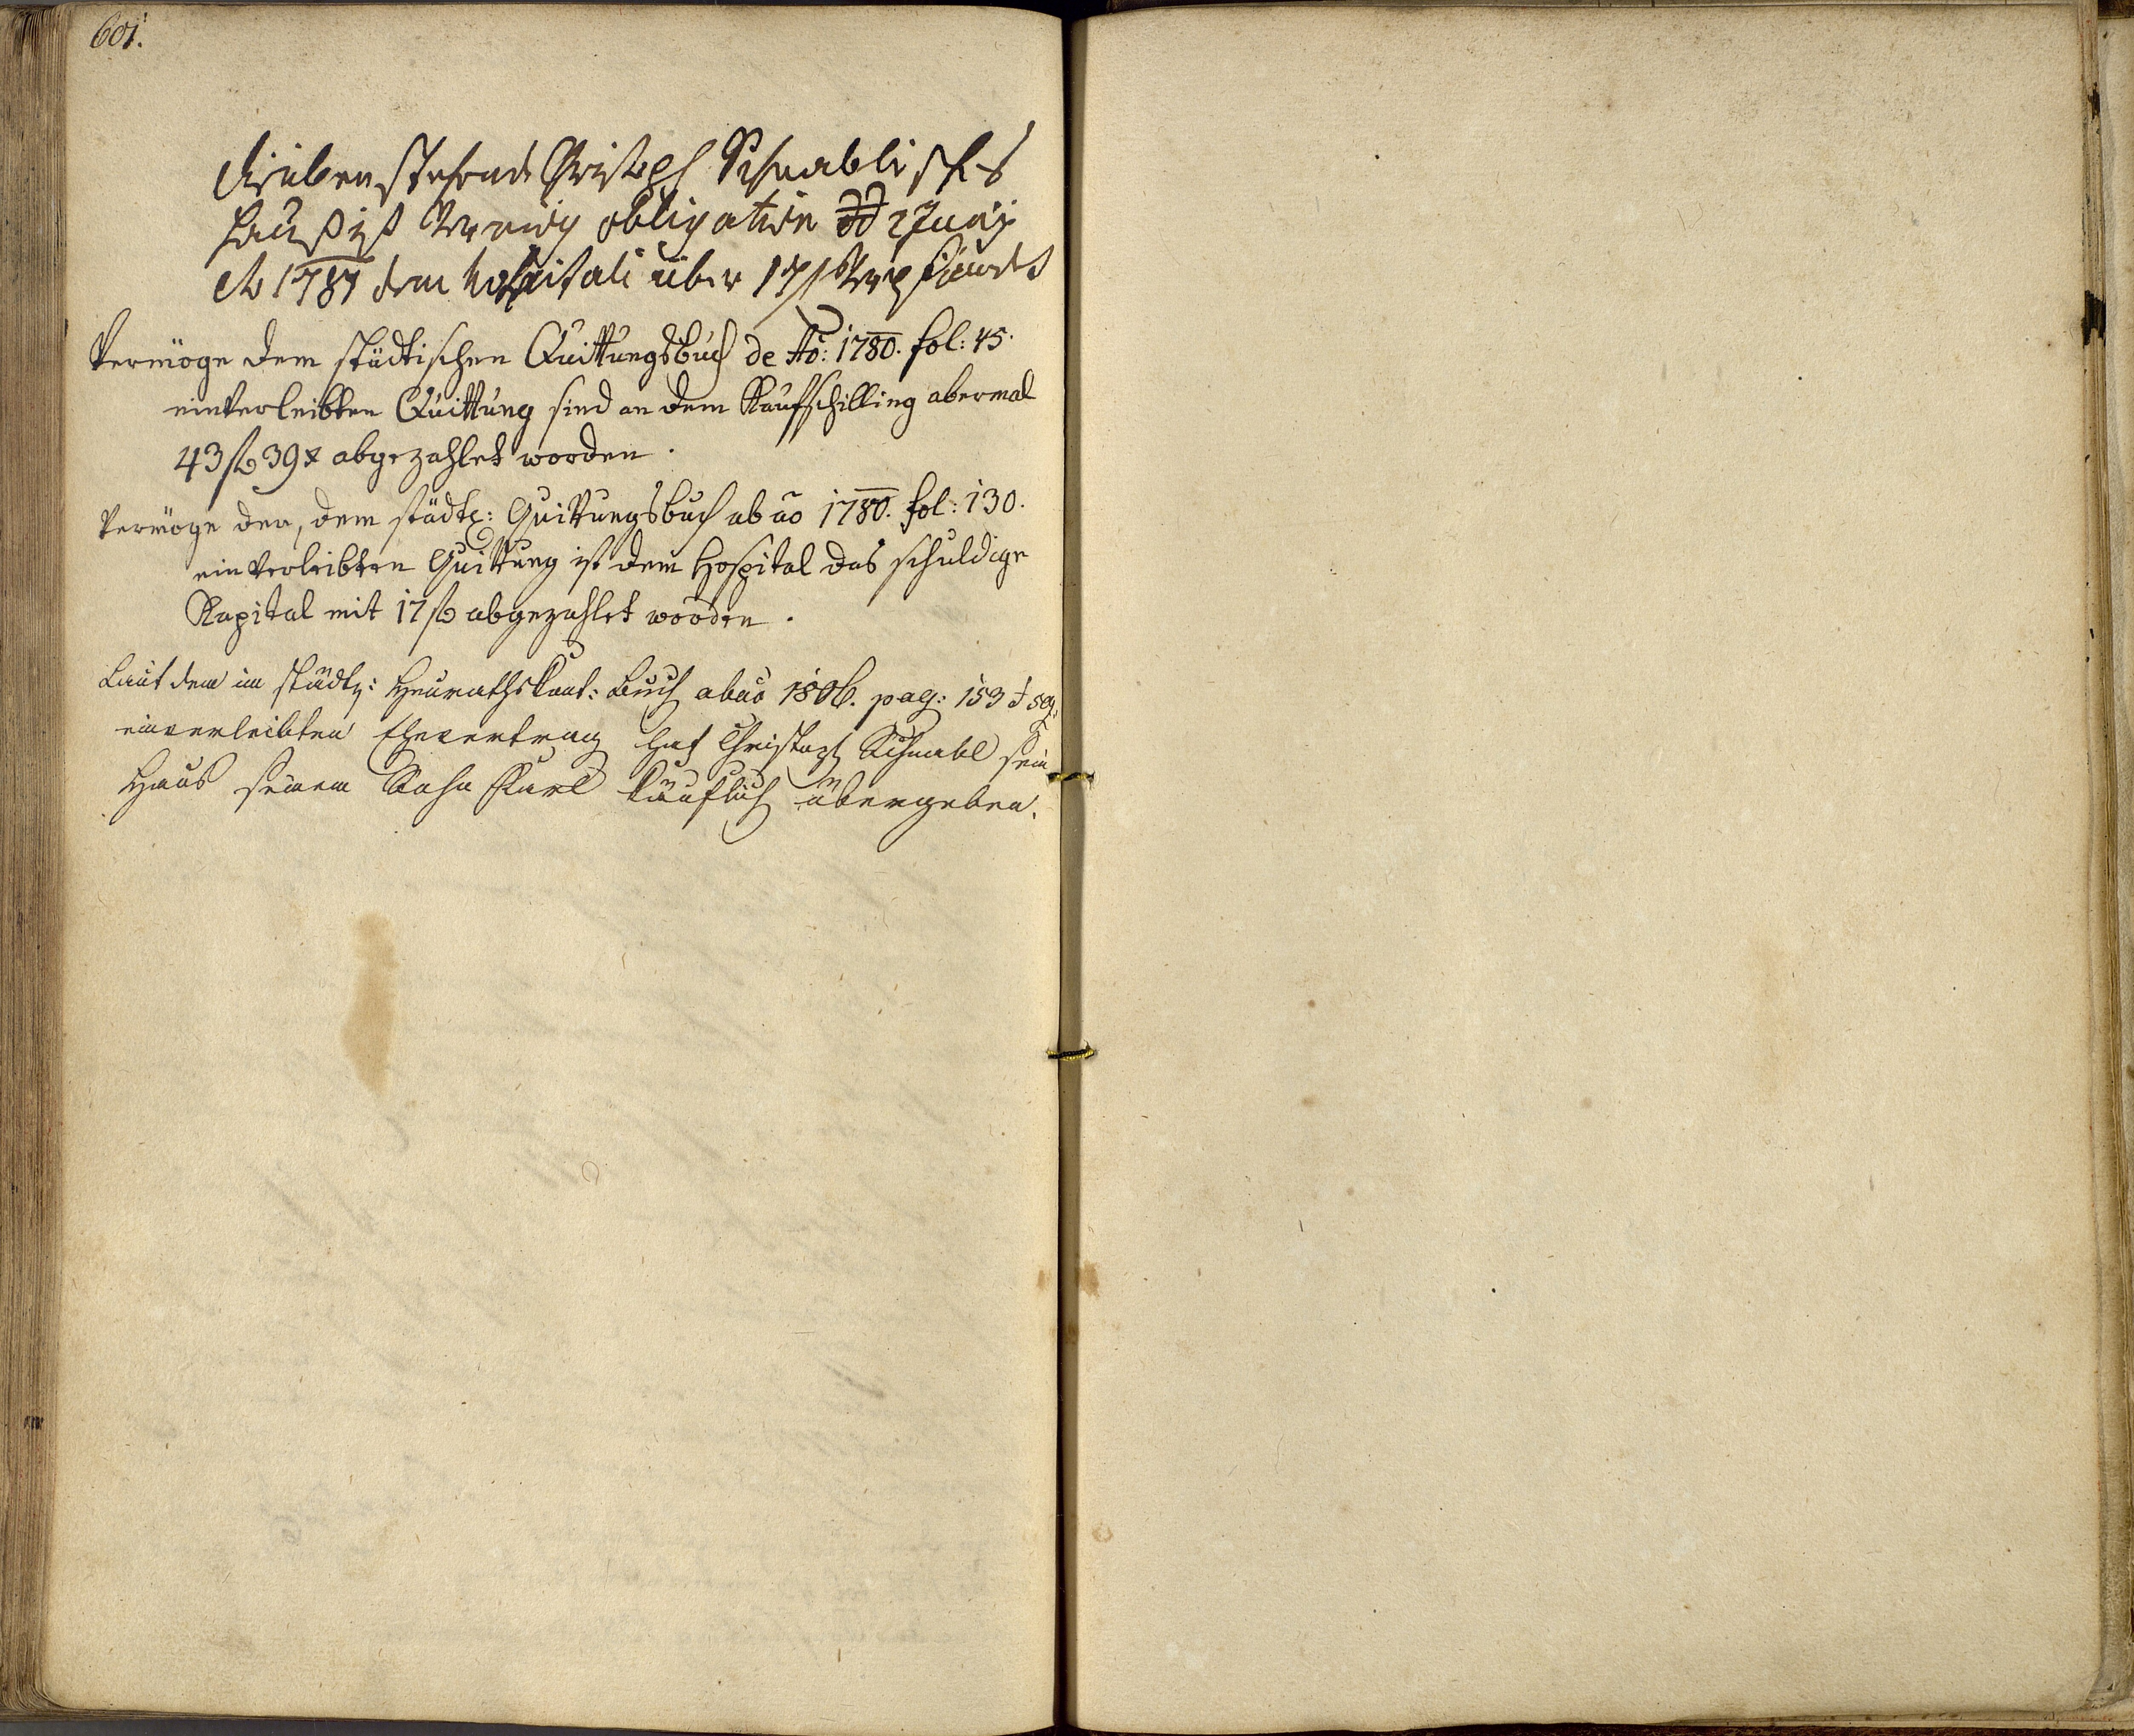 601.
drüben stehende Christoph Schnablisches
Hauß ist Vermög obligation dd 2 Junÿ
Ao 1787 dem hospitali über 17 f Verpfändet
Vermöge dem städtischen Quittungsbuch de Ao: 1780. fol: 45.
einverleibten Quittung sind an dem Kaufschilling abermal
43 f 39 x abgezahlet worden.
Vermöge der, dem städt: Quittungsbuch ab ao 1780. fol: 130.
einverleibten Quittung ist dem Hospital das schuldige
Kapital mit 17 f abgezahlet worden.
Laut dem im städt: Heurathskont: Buch ab ao 1806. pag: 153 & seq:
einverleibten Ehevertrag hat Christoph Schnabl sein
Haus seinem Sohn Karl käuflich übergeben.